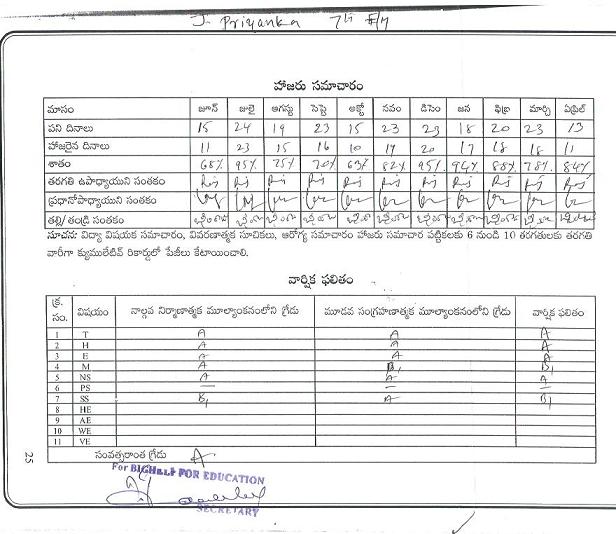 J. Priyanka 7th E/M
హాజరు సమాచారం
మాసం జూన్ జులై ఆగస్టు సెప్టె అక్టో నవం డిసెం జన ఫిబ్ర మార్చి ఏప్రిల్
పని దినాలు 15 24 19 23 15 23 23 18 20 23 13
హాజరైన దినాలు 11 23 15 16 10 19 20 17 18 18 11
శాతం 68% 95% 75% 70% 63% 82% 95% 94% 88% 78% 84%
తరగతి ఉపాధ్యాయుని సంతకం
ప్రధానోపాధ్యాయుని సంతకం
తల్లి/తండ్రి సంతకం
సూచన: విద్యా విషయక సమాచారం, వివరణాత్మక సూచికలు, ఆరోగ్య సమాచారం హాజరు సమాచార పట్టికలకు 6 నుండి 10 తరగతులకు తరగతి
వారీగా క్యుములేటివ్ రికార్డులో పేజీలు కేటాయించాలి.
వార్షిక ఫలితం
క్ర. సం. విషయం నాల్గవ నిర్మాణాత్మక మూల్యాంకనంలోని గ్రేడు మూడవ సంగ్రహణాత్మక మూల్యాంకనంలోని గ్రేడు వార్షిక ఫలితం
1 T A A A
2 H A A A
3 E A A A
4 M A B1 B1
5 NS A A A
6 PS — — —
7 SS B1 A B1
8 HE
9 AE
10 WE
11 VE
సంవత్సరాంత గ్రేడు A
25
For BIGHELP FOR EDUCATION
SECRETARY